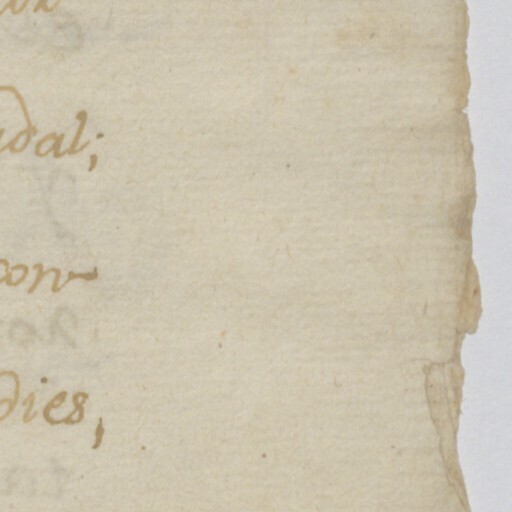 udal;
con
dies,